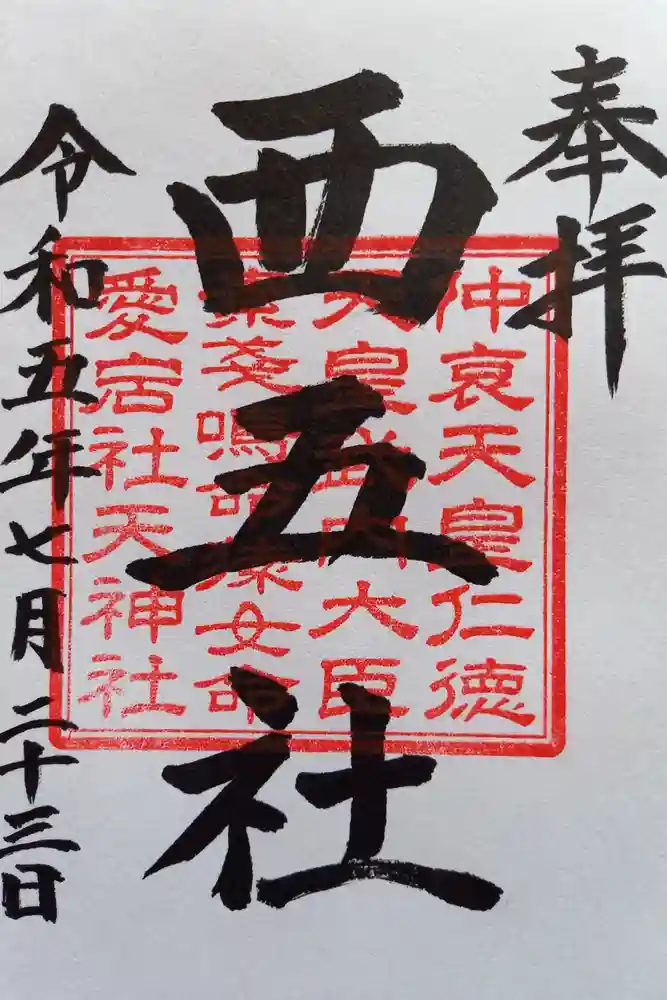 奉拝
西五社
仲哀天皇仁徳
天皇武内大臣
命
愛宕社天神社
令和五年七月二十三日